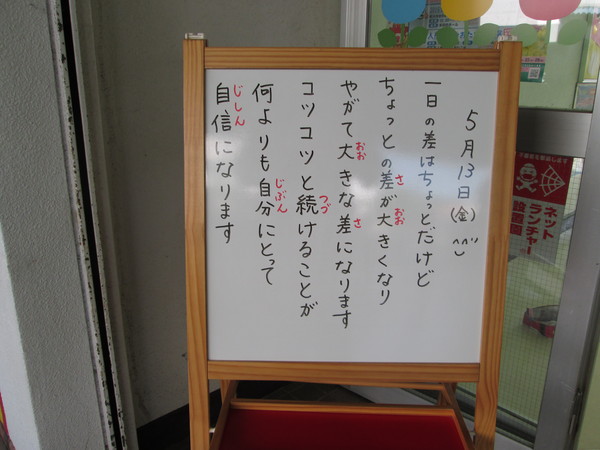 5月13日(金)
一日の差はちょっとだけど
ちょっとの差が大きくなり
やがて大きな差になります
コツコツと続けることが
何よりも自分にとって
自信になります
さ
おお
おお
さ
つづ
じぶん
じしん
ネット
ランチャー
設置園